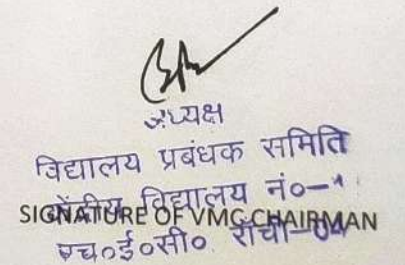 अध्यक्ष
विद्यालय प्रबंधक समिति
केंद्रीय विद्यालय नं०-१
SIGNATURE OF VMC CHAIRMAN
एच०ई०सी० राँची-04